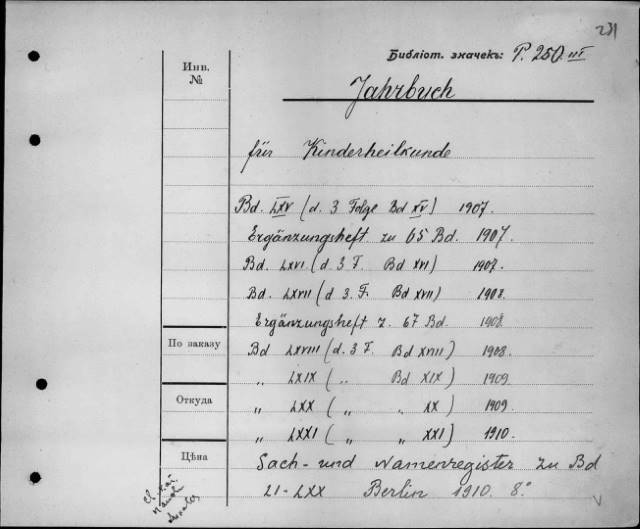 231
Библіот. значекъ: P. 250 III
Инв.
№
Jahrbuch
für Kinderheilkunde
Bd. LXV (d. 3 Folge Bd XV) 1907.
Ergänzungsheft zu 65 Bd. 1907.
Bd. LXVI (d 3 F. Bd XVI) 1907.
Bd. LXVII (d 3. F. Bd XVII) 1908.
Ergänzungsheft z. 67 Bd. 1908.
По заказу
Bd LXVIII (d. 3 F. Bd XVIII) 1908.
„ LXIX („ Bd XIX) 1909.
Откуда
„ LXX („ „ XX) 1909.
„ LXXI („ „ XXI) 1910.
Цѣна
Sach- und Namenregister zu Bd
21-LXX Berlin 1910. 8°